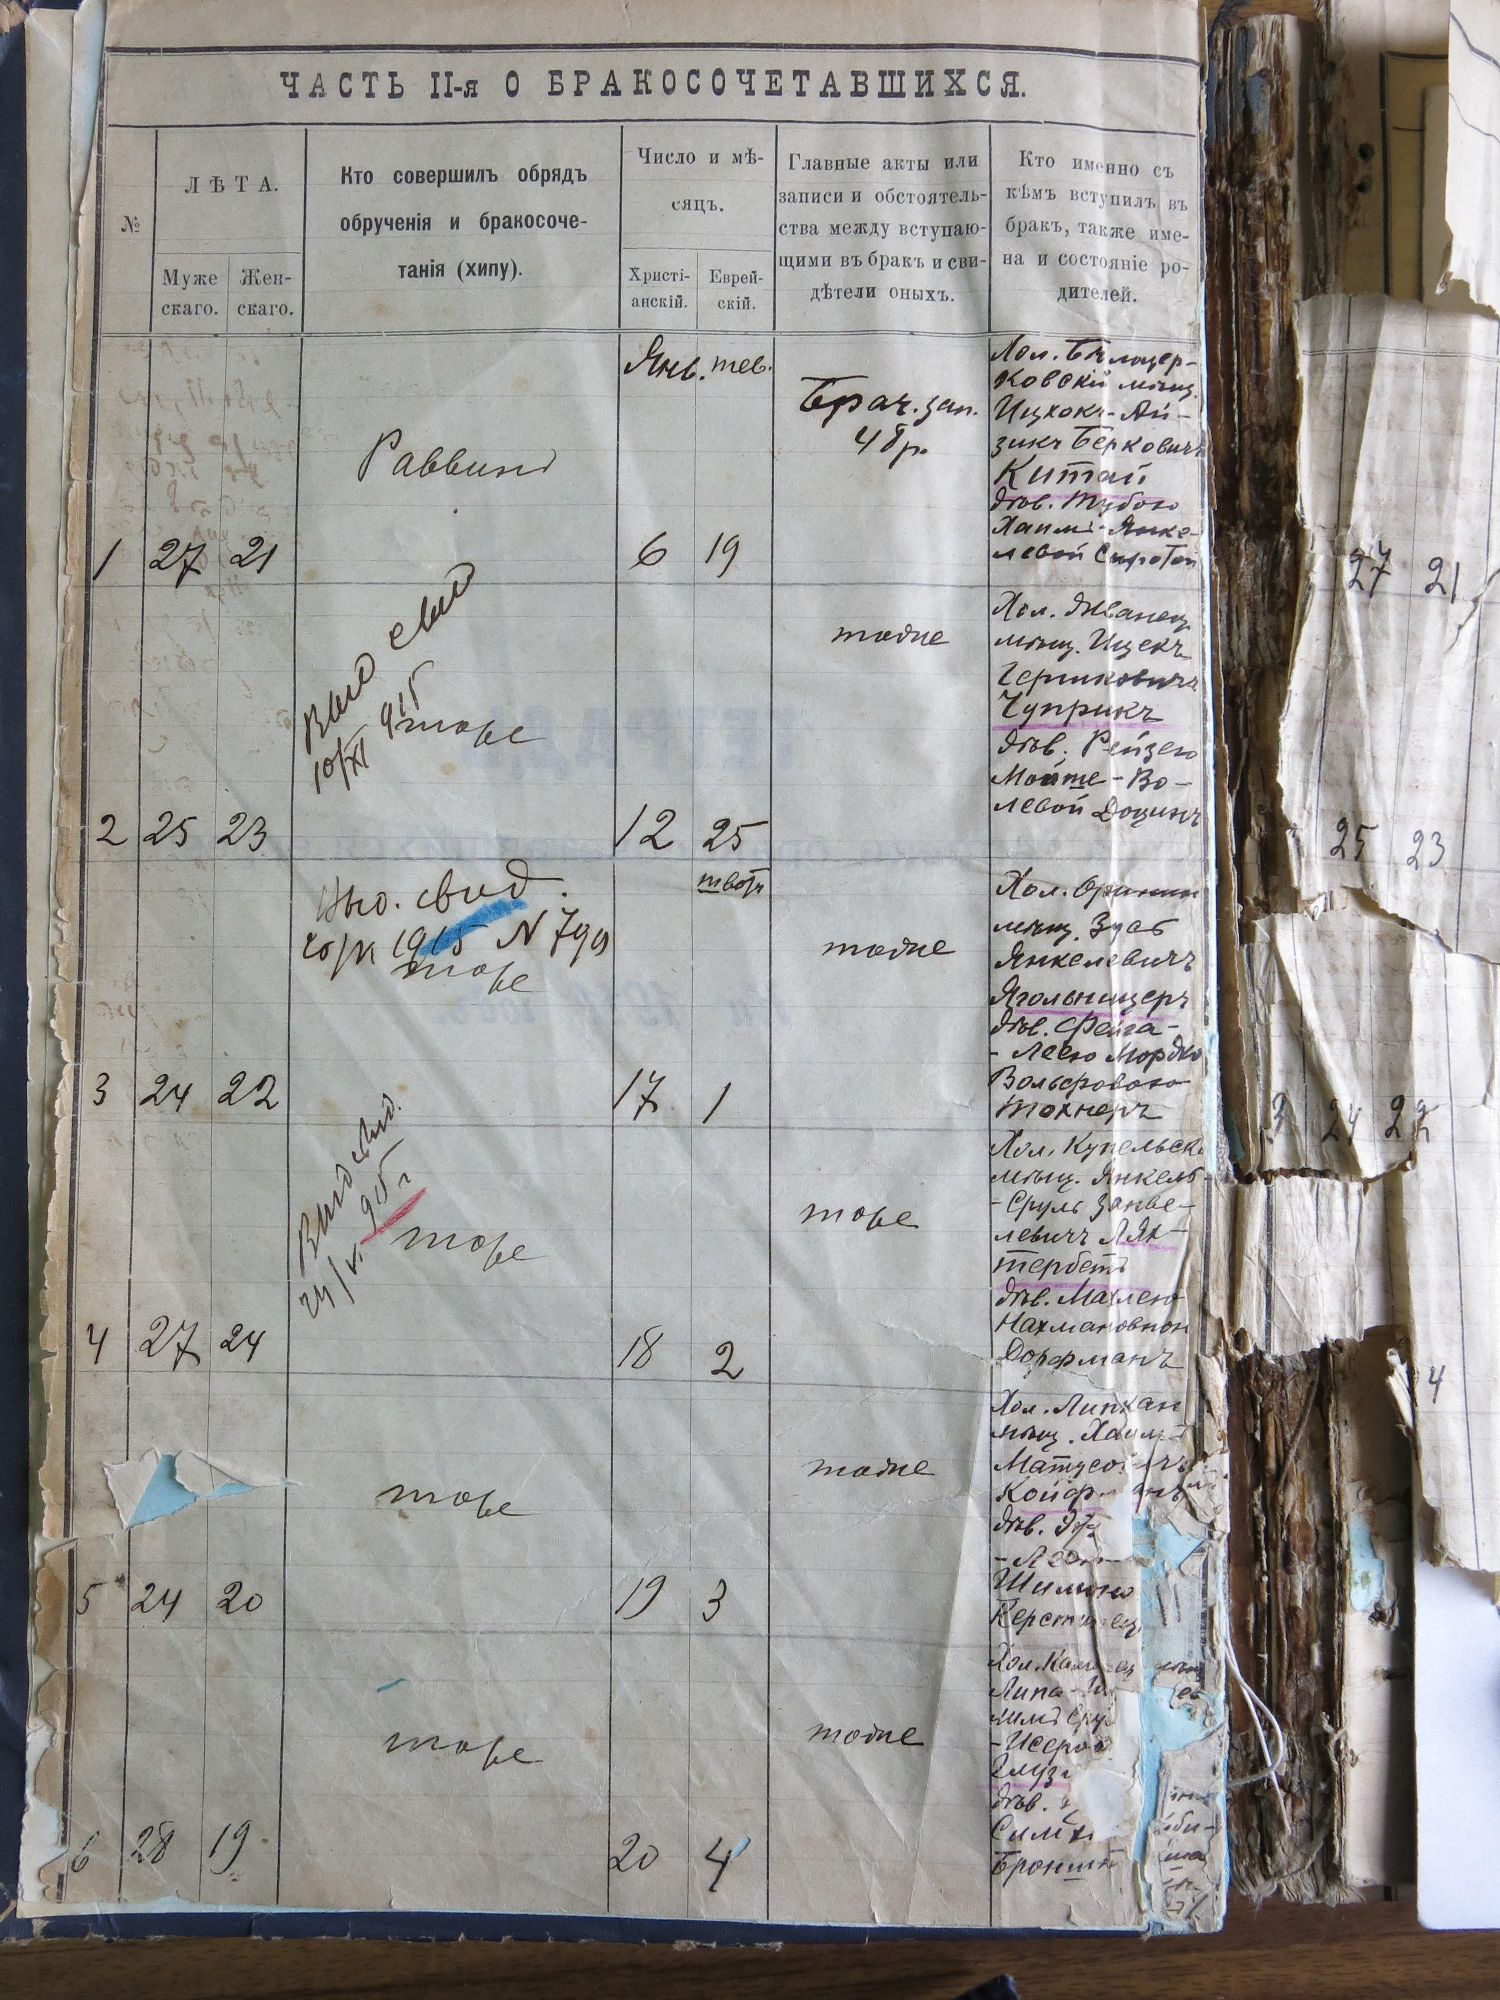 ЧАСТЬ II-я О БРАКОСОЧЕТАВШИХСЯ.
№
ЛѢТА.
Муже
скаго.
Жен-
скаго.
Кто совершилъ обрядъ
обрученія и бракосоче-
танія (хипу).
Число и мѣ-
сяцъ.
Христі-
анскій.
Еврей-
скій.
Главные акты или
записи и обстоятель-
ства между вступаю-
щими въ бракъ и сви-
дѣтели оныхъ.
Кто именно съ
кѣмъ вступилъ въ
бракъ, также име-
на и состояніе ро-
дителей.
1 27 21
Раввинъ
Янв. тев.
6 19
Брач. зап.
Хол. Бѣлоцер-
ковскій мѣщ.
Ицхокъ-Ай-
зикъ Берковичъ
Китай
дѣв. Тубою
Хаимъ-Янке-
левой Сиротой
2 25 23
Выд свид
10/XI 915
тоже
12 25
тоже
Хол. Жванец
мѣщ. Ицекъ
Гершковичъ
Чуприкъ
дѣв. Рейзею
Мойше-Во-
левой Доцинъ
3 24 22
свид.
1915 N 799
тоже
шватъ
17 1
тоже
Хол. Оринин
мѣщ. Зусь
Янкелевичъ
Ягольницеръ
дѣв. Фейга-
-Леею Мордко
Вольфовою
Тохнеръ
4 27 24
Выд свид.
915 г
тоже
18 2
тоже
Хол. Купельск
мѣщ. Янкель
-Сруль Занве-
левичъ Лян-
терветъ
дѣв. Махлею
Нахмановной
Дорфманъ
5 24 20
тоже
19 3
тоже
Хол. Липкан
мѣщ. Хаимъ
Койф
дѣв.
-Лею
Шимоно
6 28 19
тоже
20 4
тоже
Хол.
Липа-
-Исеров
Глуз
дѣв.
27 21
25 23
3 24 22
4